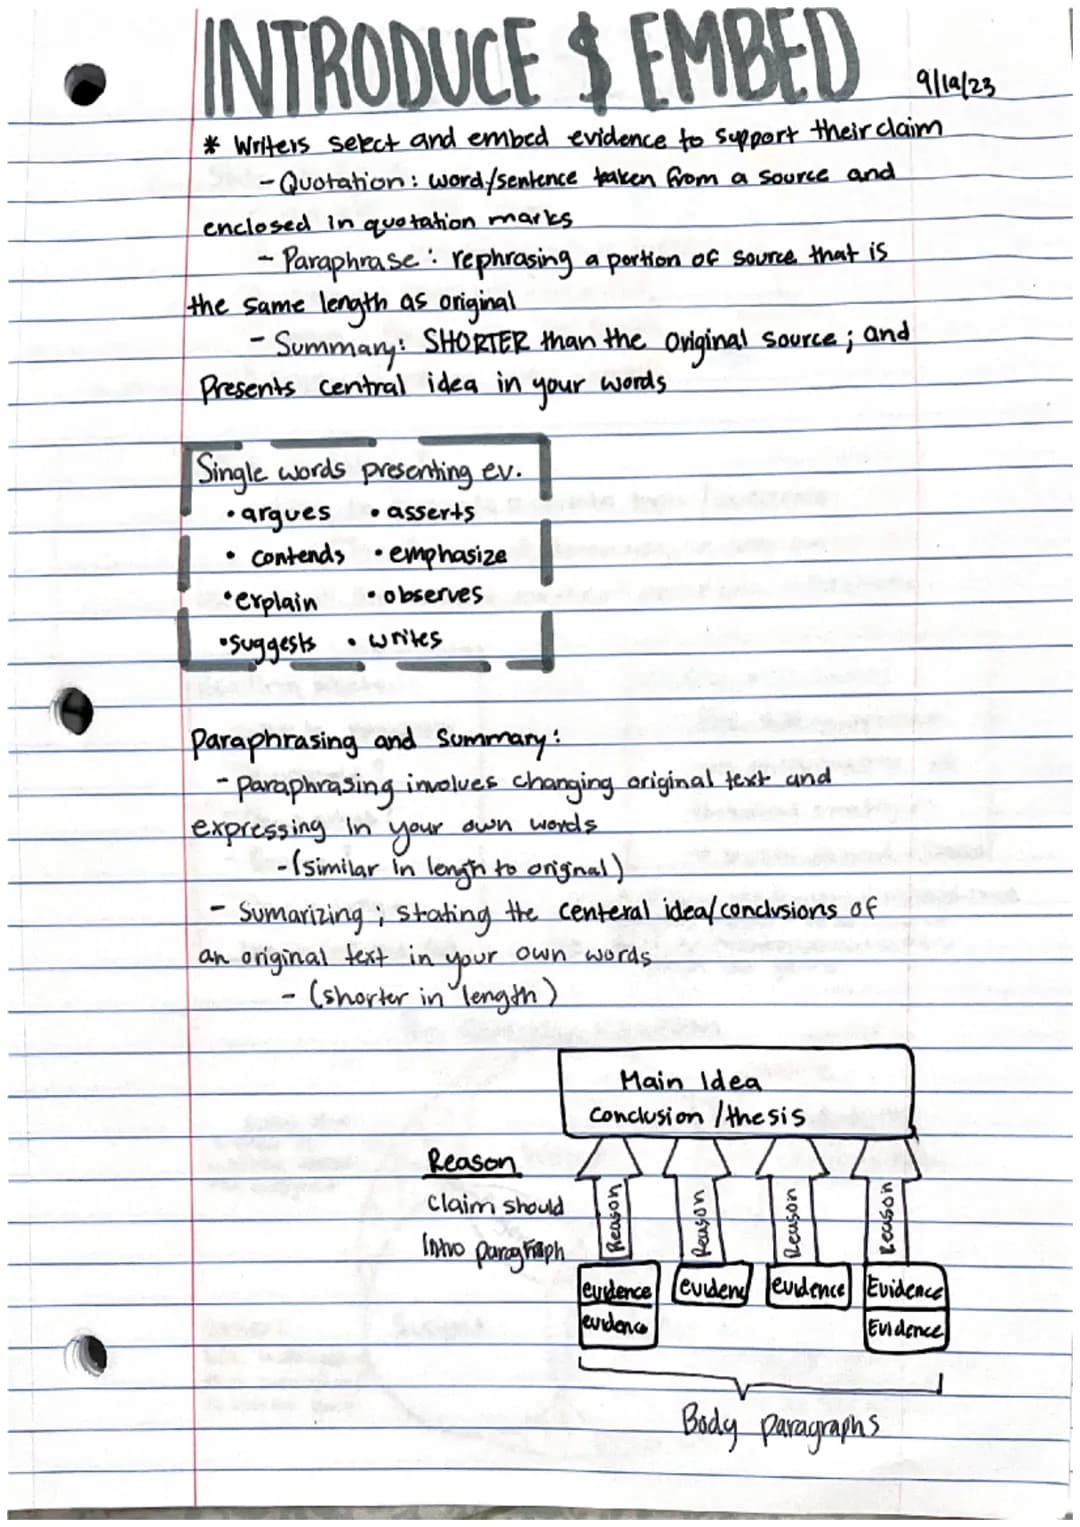 INTRODUCE & EMBED
9/19/23
* Writers select and embed evidence to support their claim
- Quotation: word/sentence taken from a source and
enclosed in quotation marks
- Paraphrase: rephrasing a portion of source that is
the same length as original
- Summary: SHORTER than the original source; and
Presents central idea in your words
Single words presenting ev.
• argues • asserts
• contends • emphasize
• explain • observes
• suggests • writes
Paraphrasing and Summary:
- Paraphrasing involves changing original text and
expressing in your own words
- (similar in length to orignal)
- Sumarizing; stating the centeral idea/conclusions of
an original text in your own words
- (shorter in length)
Main Idea
Conclusion / thesis
Reason
Claim should
Intro paragraph
Reason Reason Reason Reason
evidence evidenc evidence Evidence
evidence Evidence
Body paragraphs